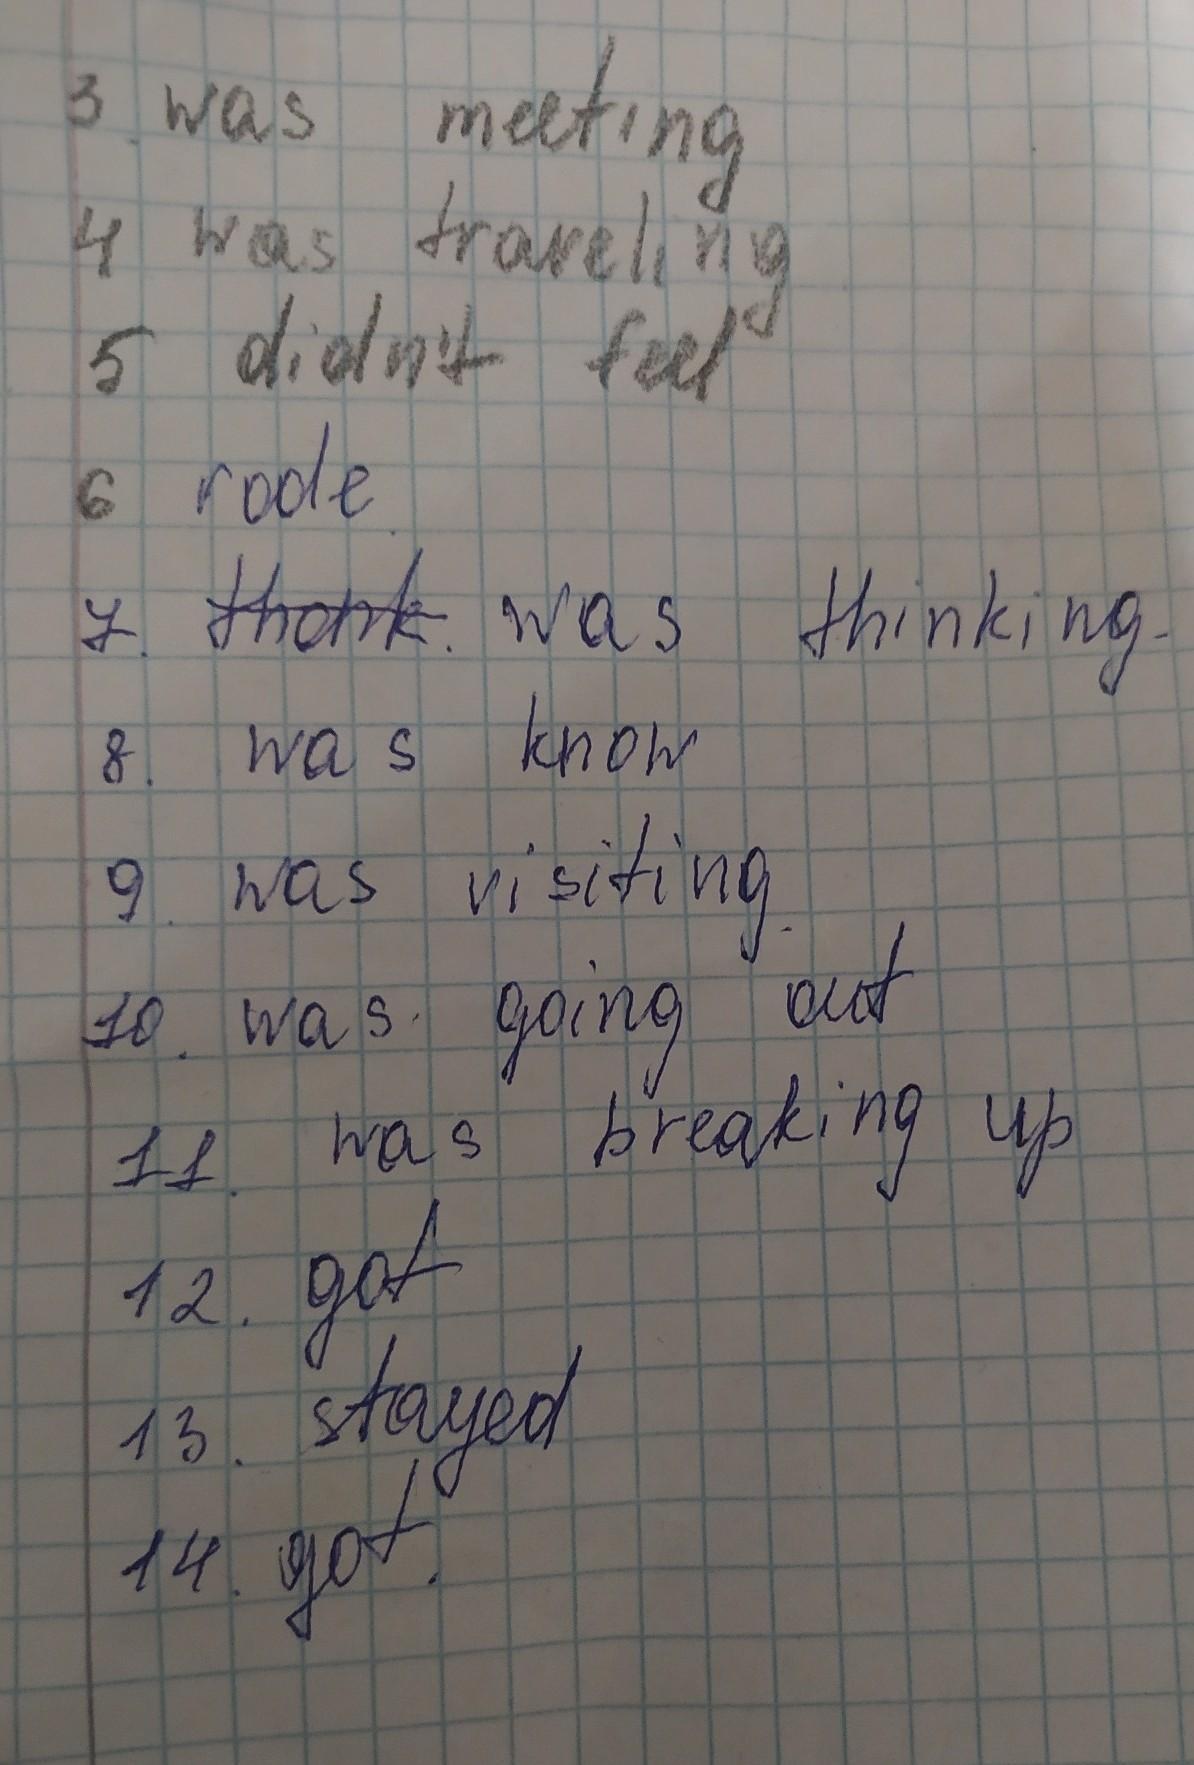 3. was meeting
4 was traveling
5 didn't feel
6 rode.
7. thonk. was thinking.
8. was know
9. was visiting.
10. was going out
11. was breaking up
12. got
13. stayed
14. got.